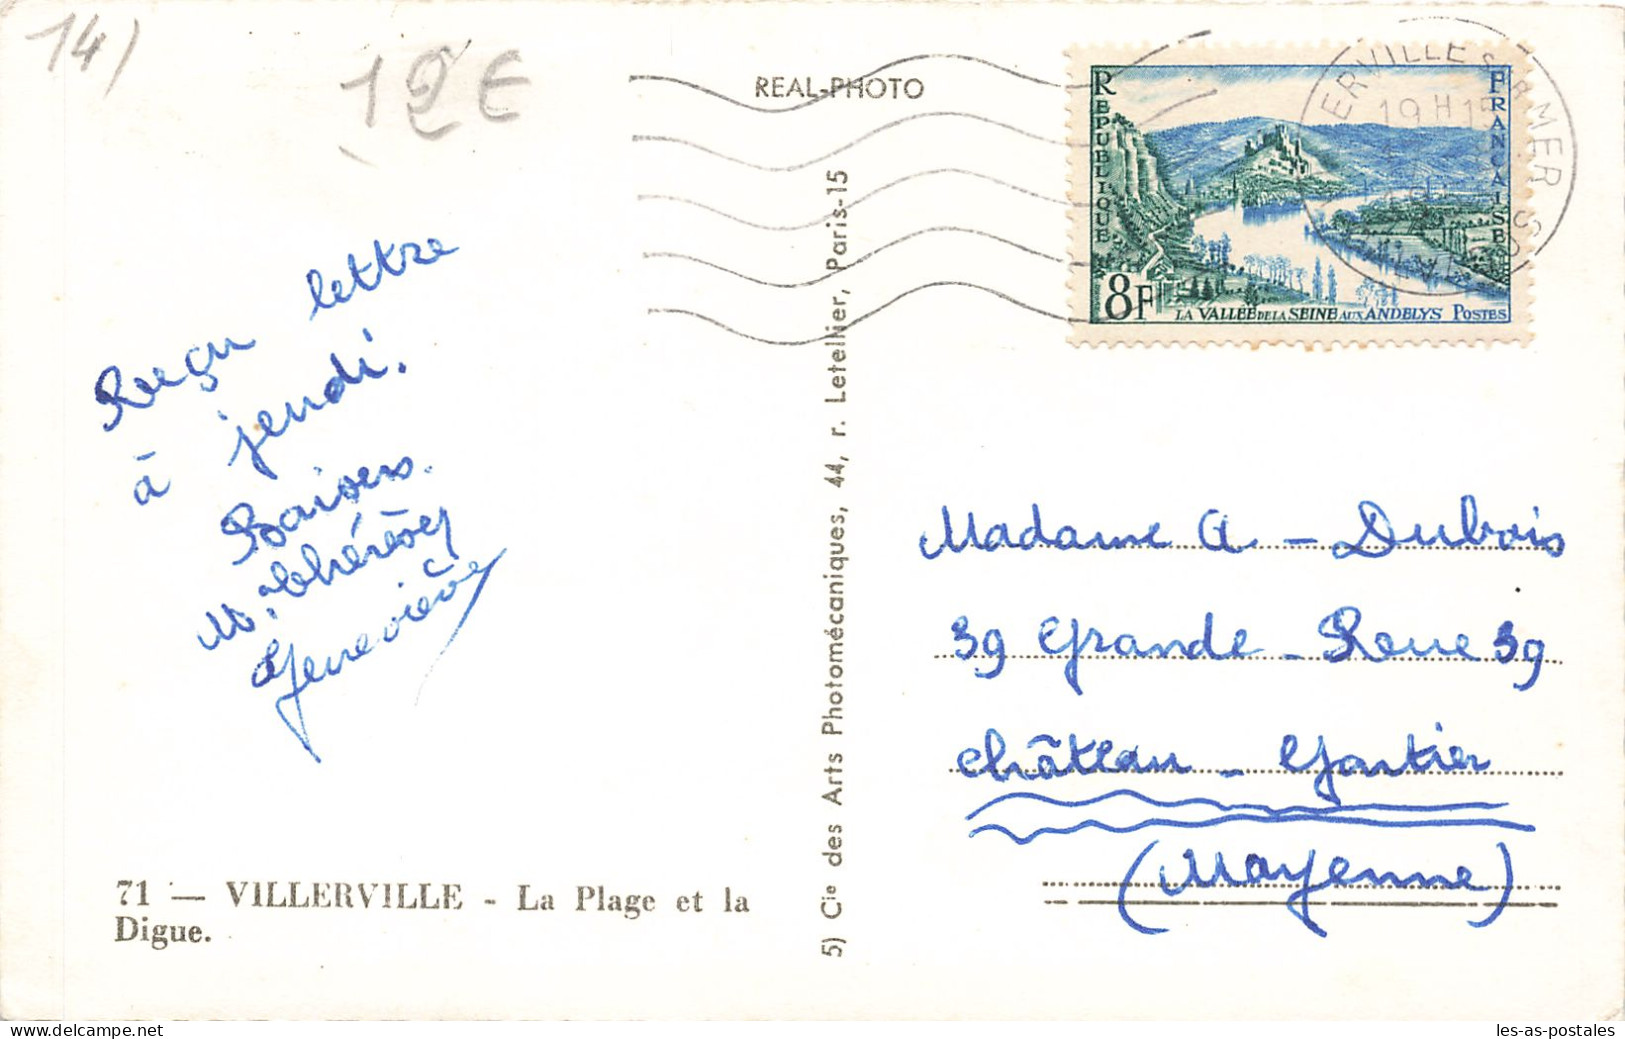 14)
12€
REAL-PHOTO
RÉPUBLIQUE
FRANÇAISE
8F
LA VALLÉE DE LA SEINE AUX ANDELYS POSTES
ERVILLE S/MER
19 H 15
CALVADOS
Reçu lettre
à jeudi.
Baisers.
M. Thérèse
Geneviève
71 — VILLERVILLE - La Plage et la
Digue.
5) Cie des Arts Photomécaniques, 44, r. Letellier, Paris-15
Madame A - Dubois
39 Grande - Rue 39
Château - Gontier
(Mayenne)
les-as-postales